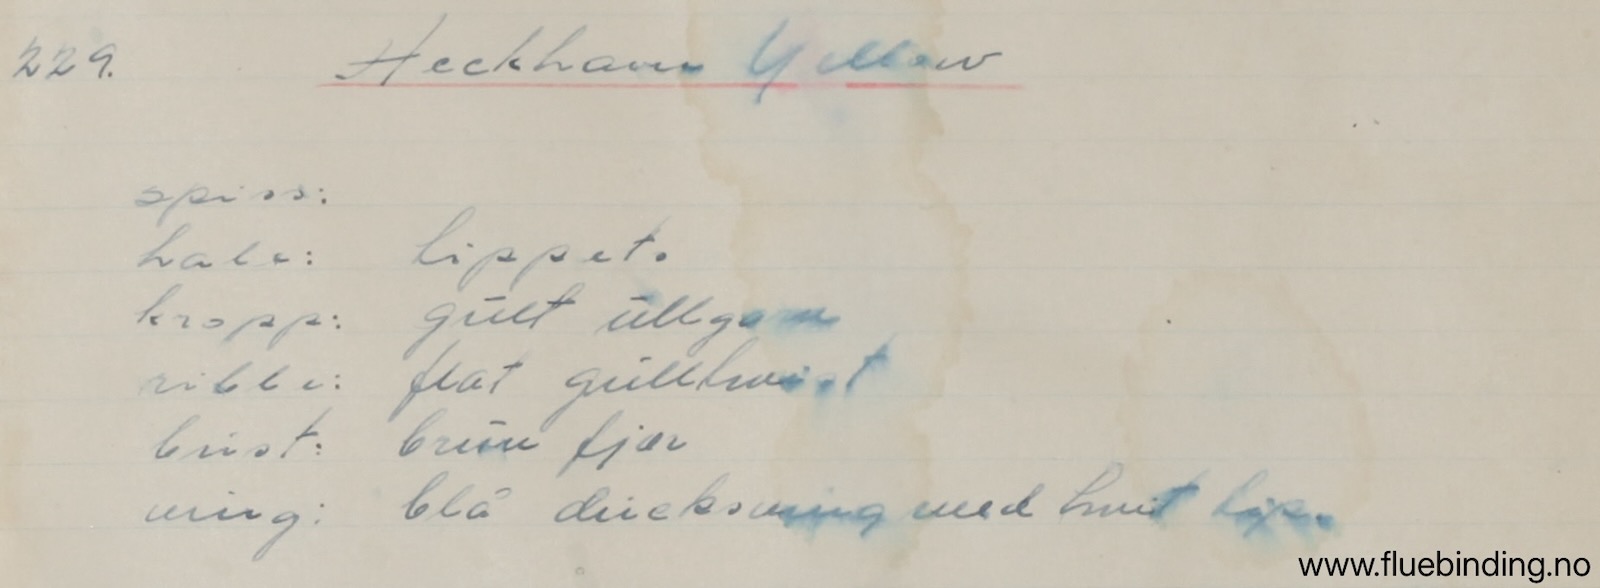 229. Heckham Yellow
spiss:
hale: tippet.
kropp: gült üllgarn
ribbe: flat gülltwist
brüst: brün fjær
wing: blå dückswing med hvit tip.
www.fluebinding.no